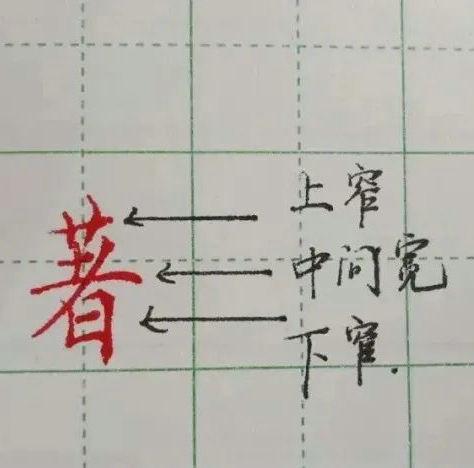 著
上窄
中间宽
下窄.